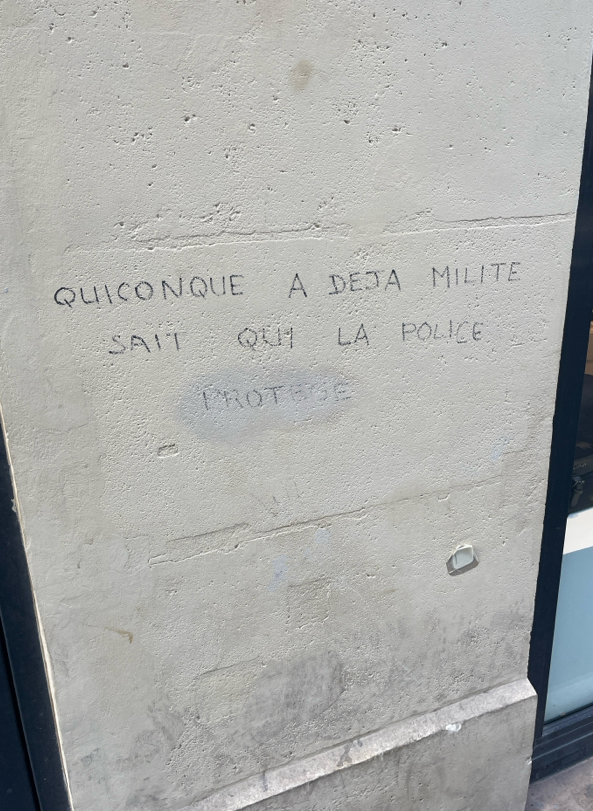 QUICONQUE A DEJA MILITE
SAIT QUI LA POLICE
PROTEGE